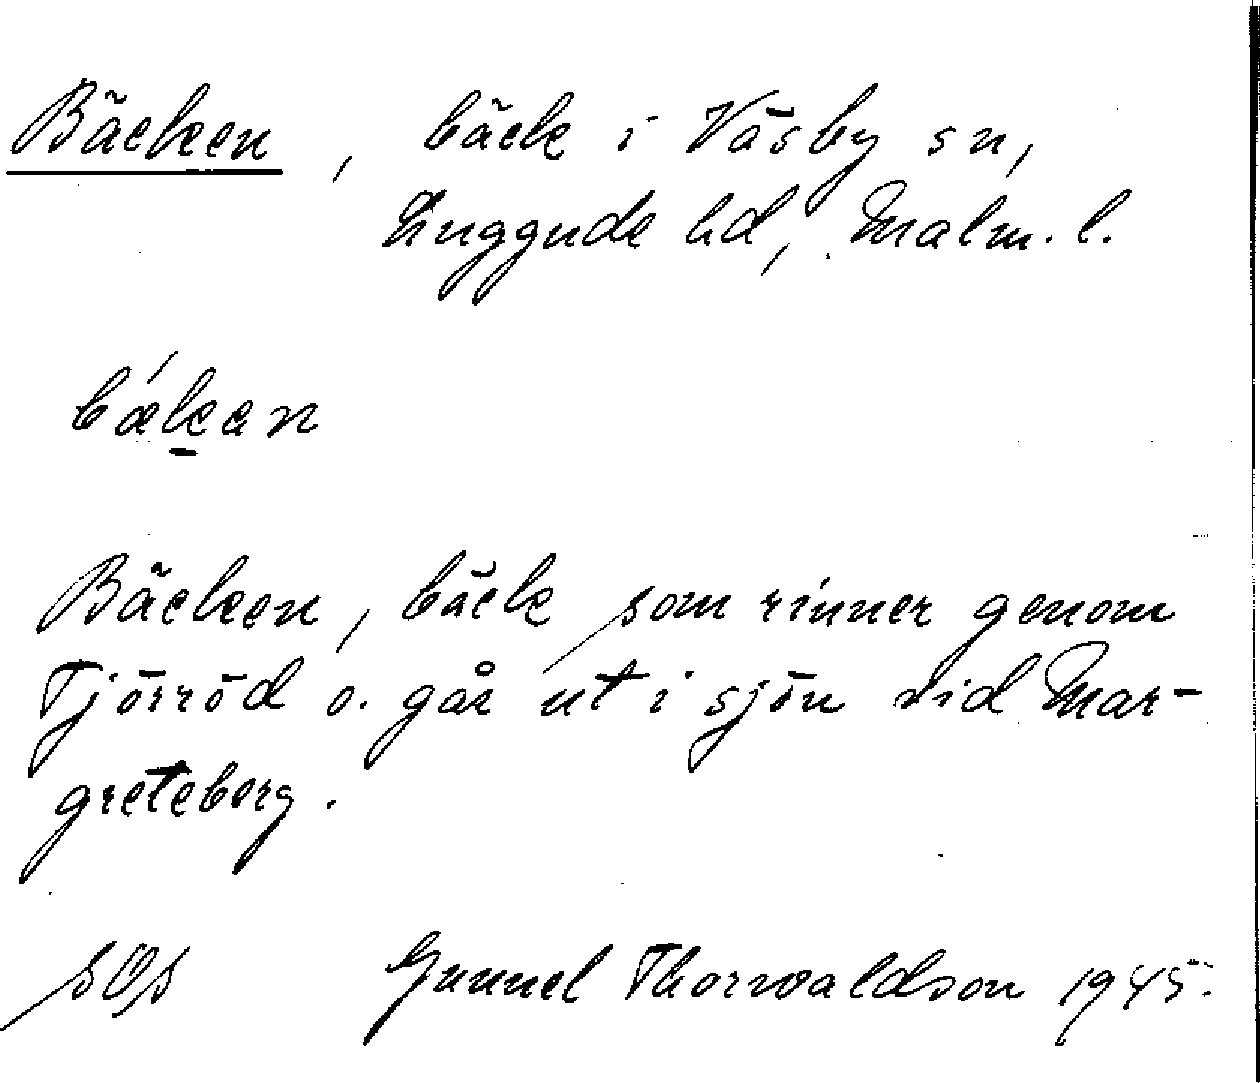 Bäcken, bäck i Väsby sn,
Luggude hd, Malm. l.
bǽkan
Bäcken, bäck som rinner genom
Tjörröd o. går ut i sjön vid Mar-
greteberg.
Gunnel Thorwaldson 1945.